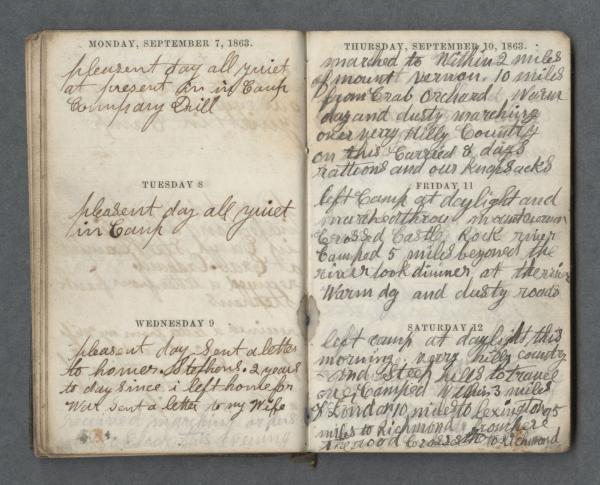 MONDAY, SEPTEMBER 7, 1863.
pleasent day all yuiet
at present an in Camp
Company Drill
TUESDAY 8
pleasent day all yuiet
in Camp
WEDNESDAY 9
pleasent day sent a letter
to homer Stephens. 2 years
to day since i left home for
War sent a letter to my Wife
THURSDAY, SEPTEMBER 10, 1863.
marched to Within 2 miles
of mount vernon. 10 miles
from Crab Orchard Warm
day and dusty marching
over very Hilly County
on this Carried 8 days
rattions and our knapsacks
FRIDAY 11
left Camp at daylight and
marched throu mount
Crossed Castle Rock river
Camped 5 miles beyond the
river took dinner at the river
Warm dy and dusty roads
SATURDAY 12
left camp at daylight this
morning very hilly country
and Steep hills to travle
over Camped Within 3 miles
of London 10 miles to Lexington 5
miles to Richmond from here
the road to Richmond